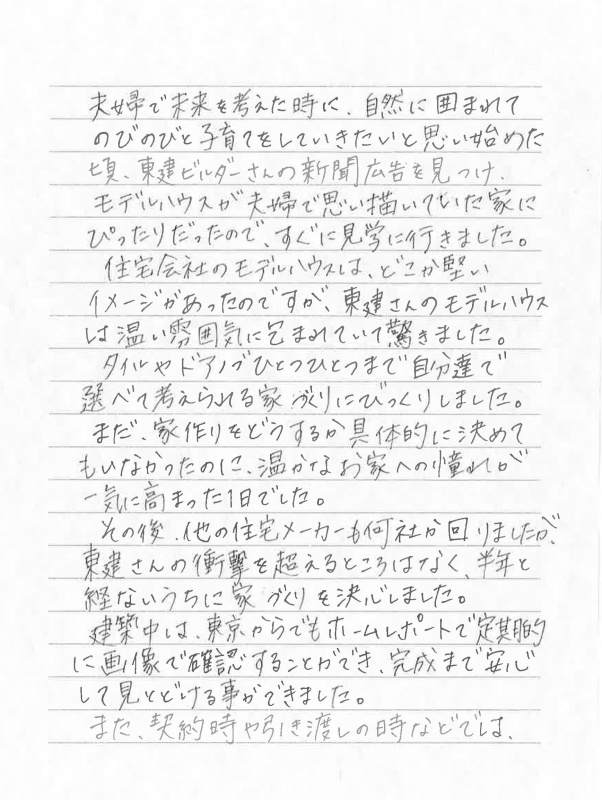 夫婦で未来を考えた時に、自然に囲まれて
のびのびと子育てをしていきたいと思い始めた
頃、東建ビルダーさんの新聞広告を見つけ、
モデルハウスが夫婦で思い描いていた家に
ぴったりだったので、すぐに見学に行きました。
住宅会社のモデルハウスは、どこか堅い
イメージがあったのですが、東建さんのモデルハウス
は温い雰囲気に包まれていて驚きました。
タイルやドアノブひとつひとつまで自分達で
選べて考えられる家づくりにびっくりしました。
まだ、家作りをどうするか具体的に決めて
もいなかったのに、温かなお家への憧れが
一気に高まった1日でした。
その後、他の住宅メーカーも何社か回りましたが、
東建さんの衝撃を超えるところはなく、半年と
経ないうちに家づくりを決心しました。
建築中は、東京からでもホームレポートで定期的
に画像で確認することができ、完成まで安心
して見とどける事ができました。
また、契約時や引き渡しの時などでは、